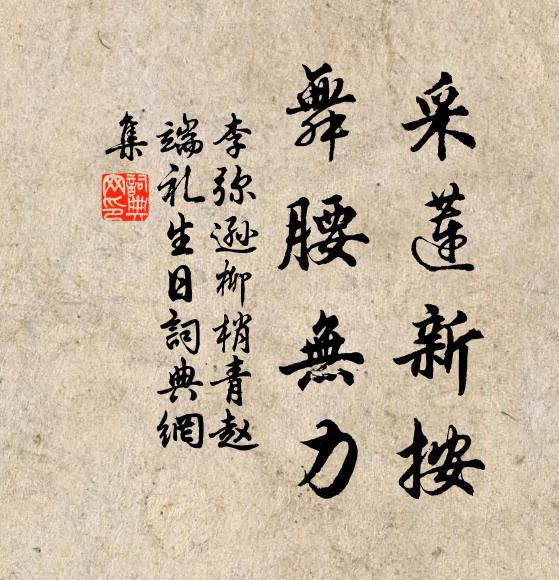 采蓮新按
舞腰無力
李弥遜柳梢青赵
端礼生日詞典網
集
詞典
网印